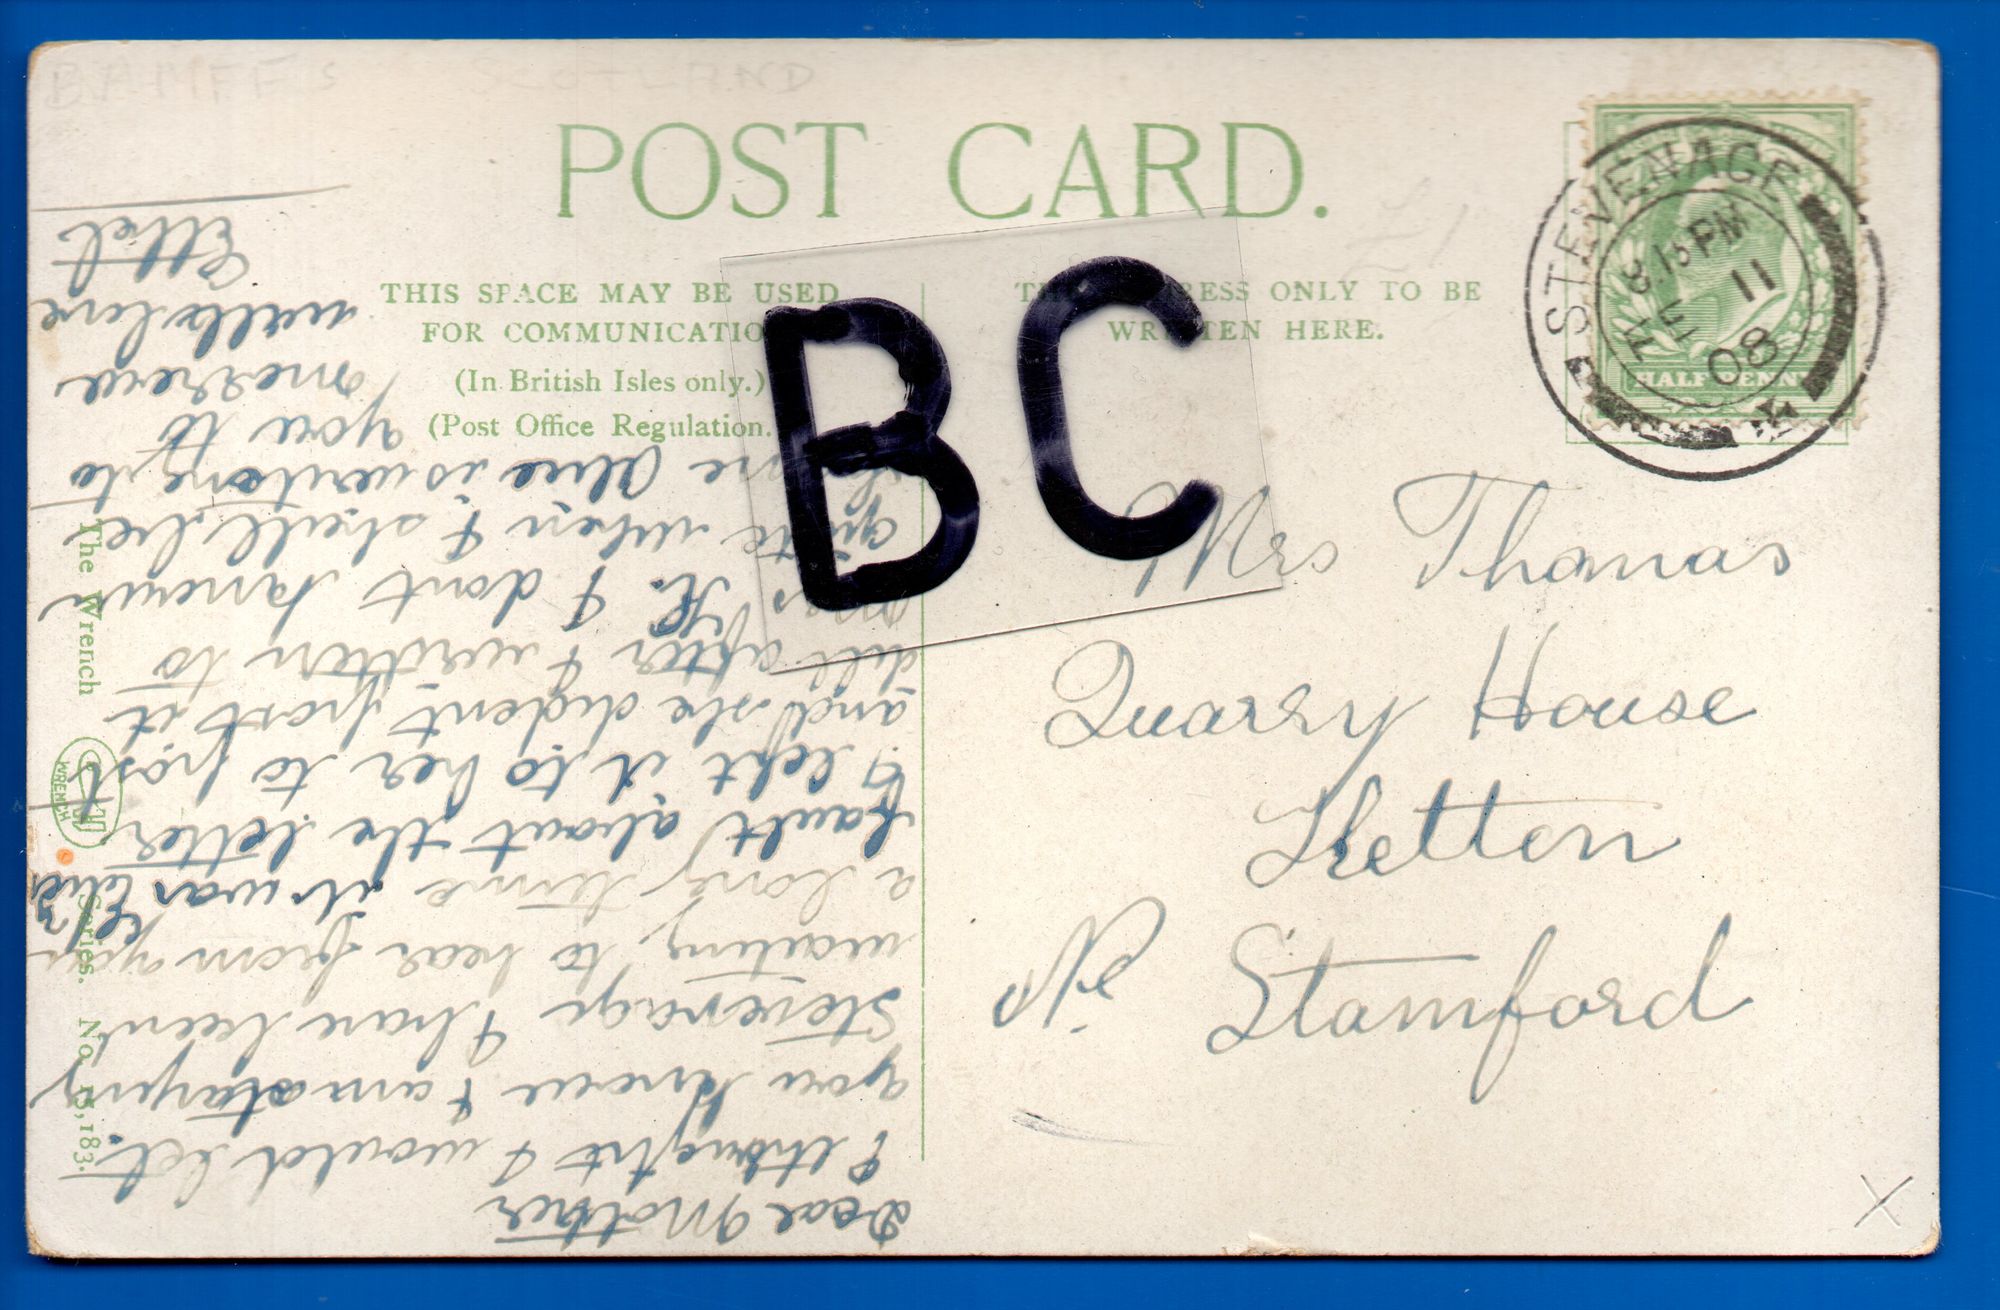 BAMFF'S SCOTLAND
POST CARD.
£1
THIS SPACE MAY BE USED
FOR COMMUNICATIO
(In British Isles only.)
(Post Office Regulation.
ONLY TO BE
HERE.
BC
STEVENAGE
8.15 PM
11
08
HALFPENNY
Mrs Thomas
Quarry House
Ketten
Nr Stamford
X
The Wrench Series. No 15,183.
WRENCH
Dear Mother
I thought I would let
you know I am staying
Stevenage I have been
waiting to hear from you
a long time it was Eliz
fault about the letter
I left it to her to post
and she dident post it
till after I written to
mrs H. I dont know
quite when I shall be
Olive is writing to
you to
love
Ethel